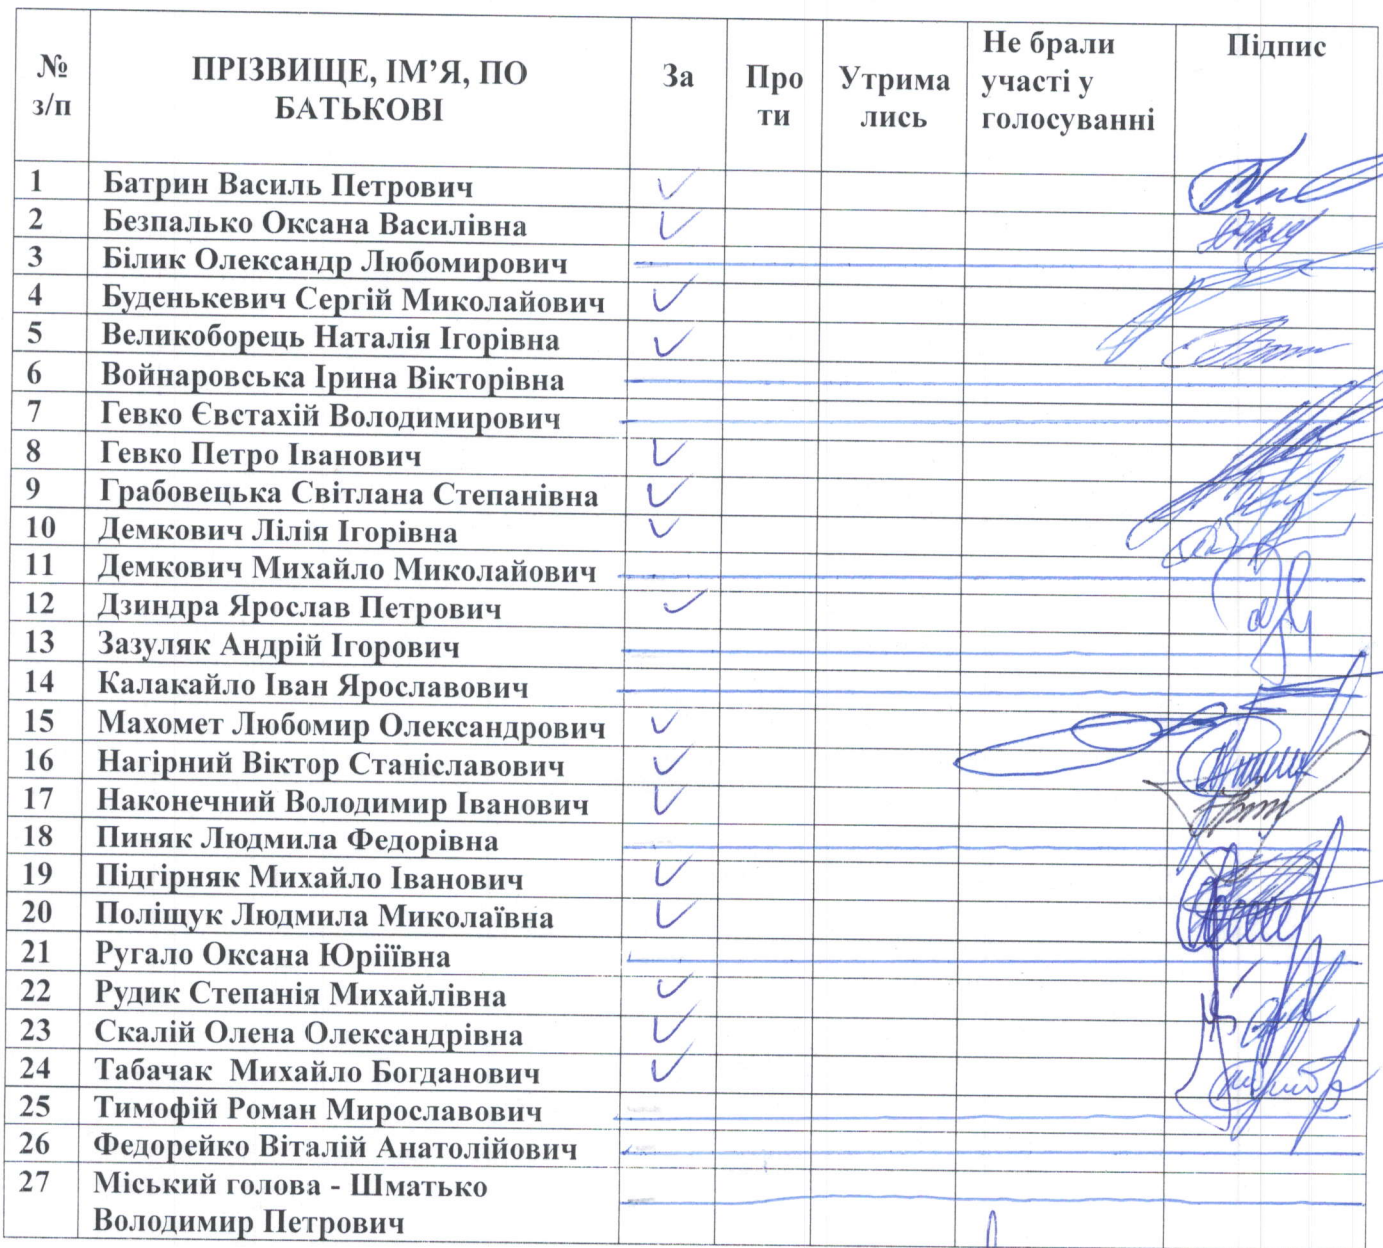 № з/п ПРІЗВИЩЕ, ІМ’Я, ПО БАТЬКОВІ За Про ти Утрима лись Не брали участі у голосуванні Підпис
1 Батрин Василь Петрович ✓
2 Безпалько Оксана Василівна ✓
3 Білик Олександр Любомирович
4 Буденькевич Сергій Миколайович ✓
5 Великоборець Наталія Ігорівна ✓
6 Войнаровська Ірина Вікторівна
7 Гевко Євстахій Володимирович
8 Гевко Петро Іванович ✓
9 Грабовецька Світлана Степанівна ✓
10 Демкович Лілія Ігорівна ✓
11 Демкович Михайло Миколайович
12 Дзиндра Ярослав Петрович ✓
13 Зазуляк Андрій Ігорович
14 Калакайло Іван Ярославович
15 Махомет Любомир Олександрович ✓
16 Нагірний Віктор Станіславович ✓
17 Наконечний Володимир Іванович ✓
18 Пиняк Людмила Федорівна
19 Підгірняк Михайло Іванович ✓
20 Поліщук Людмила Миколаївна ✓
21 Ругало Оксана Юріїївна
22 Рудик Степанія Михайлівна ✓
23 Скалій Олена Олександрівна ✓
24 Табачак Михайло Богданович ✓
25 Тимофій Роман Мирославович
26 Федорейко Віталій Анатолійович
27 Міський голова - Шматько
Володимир Петрович